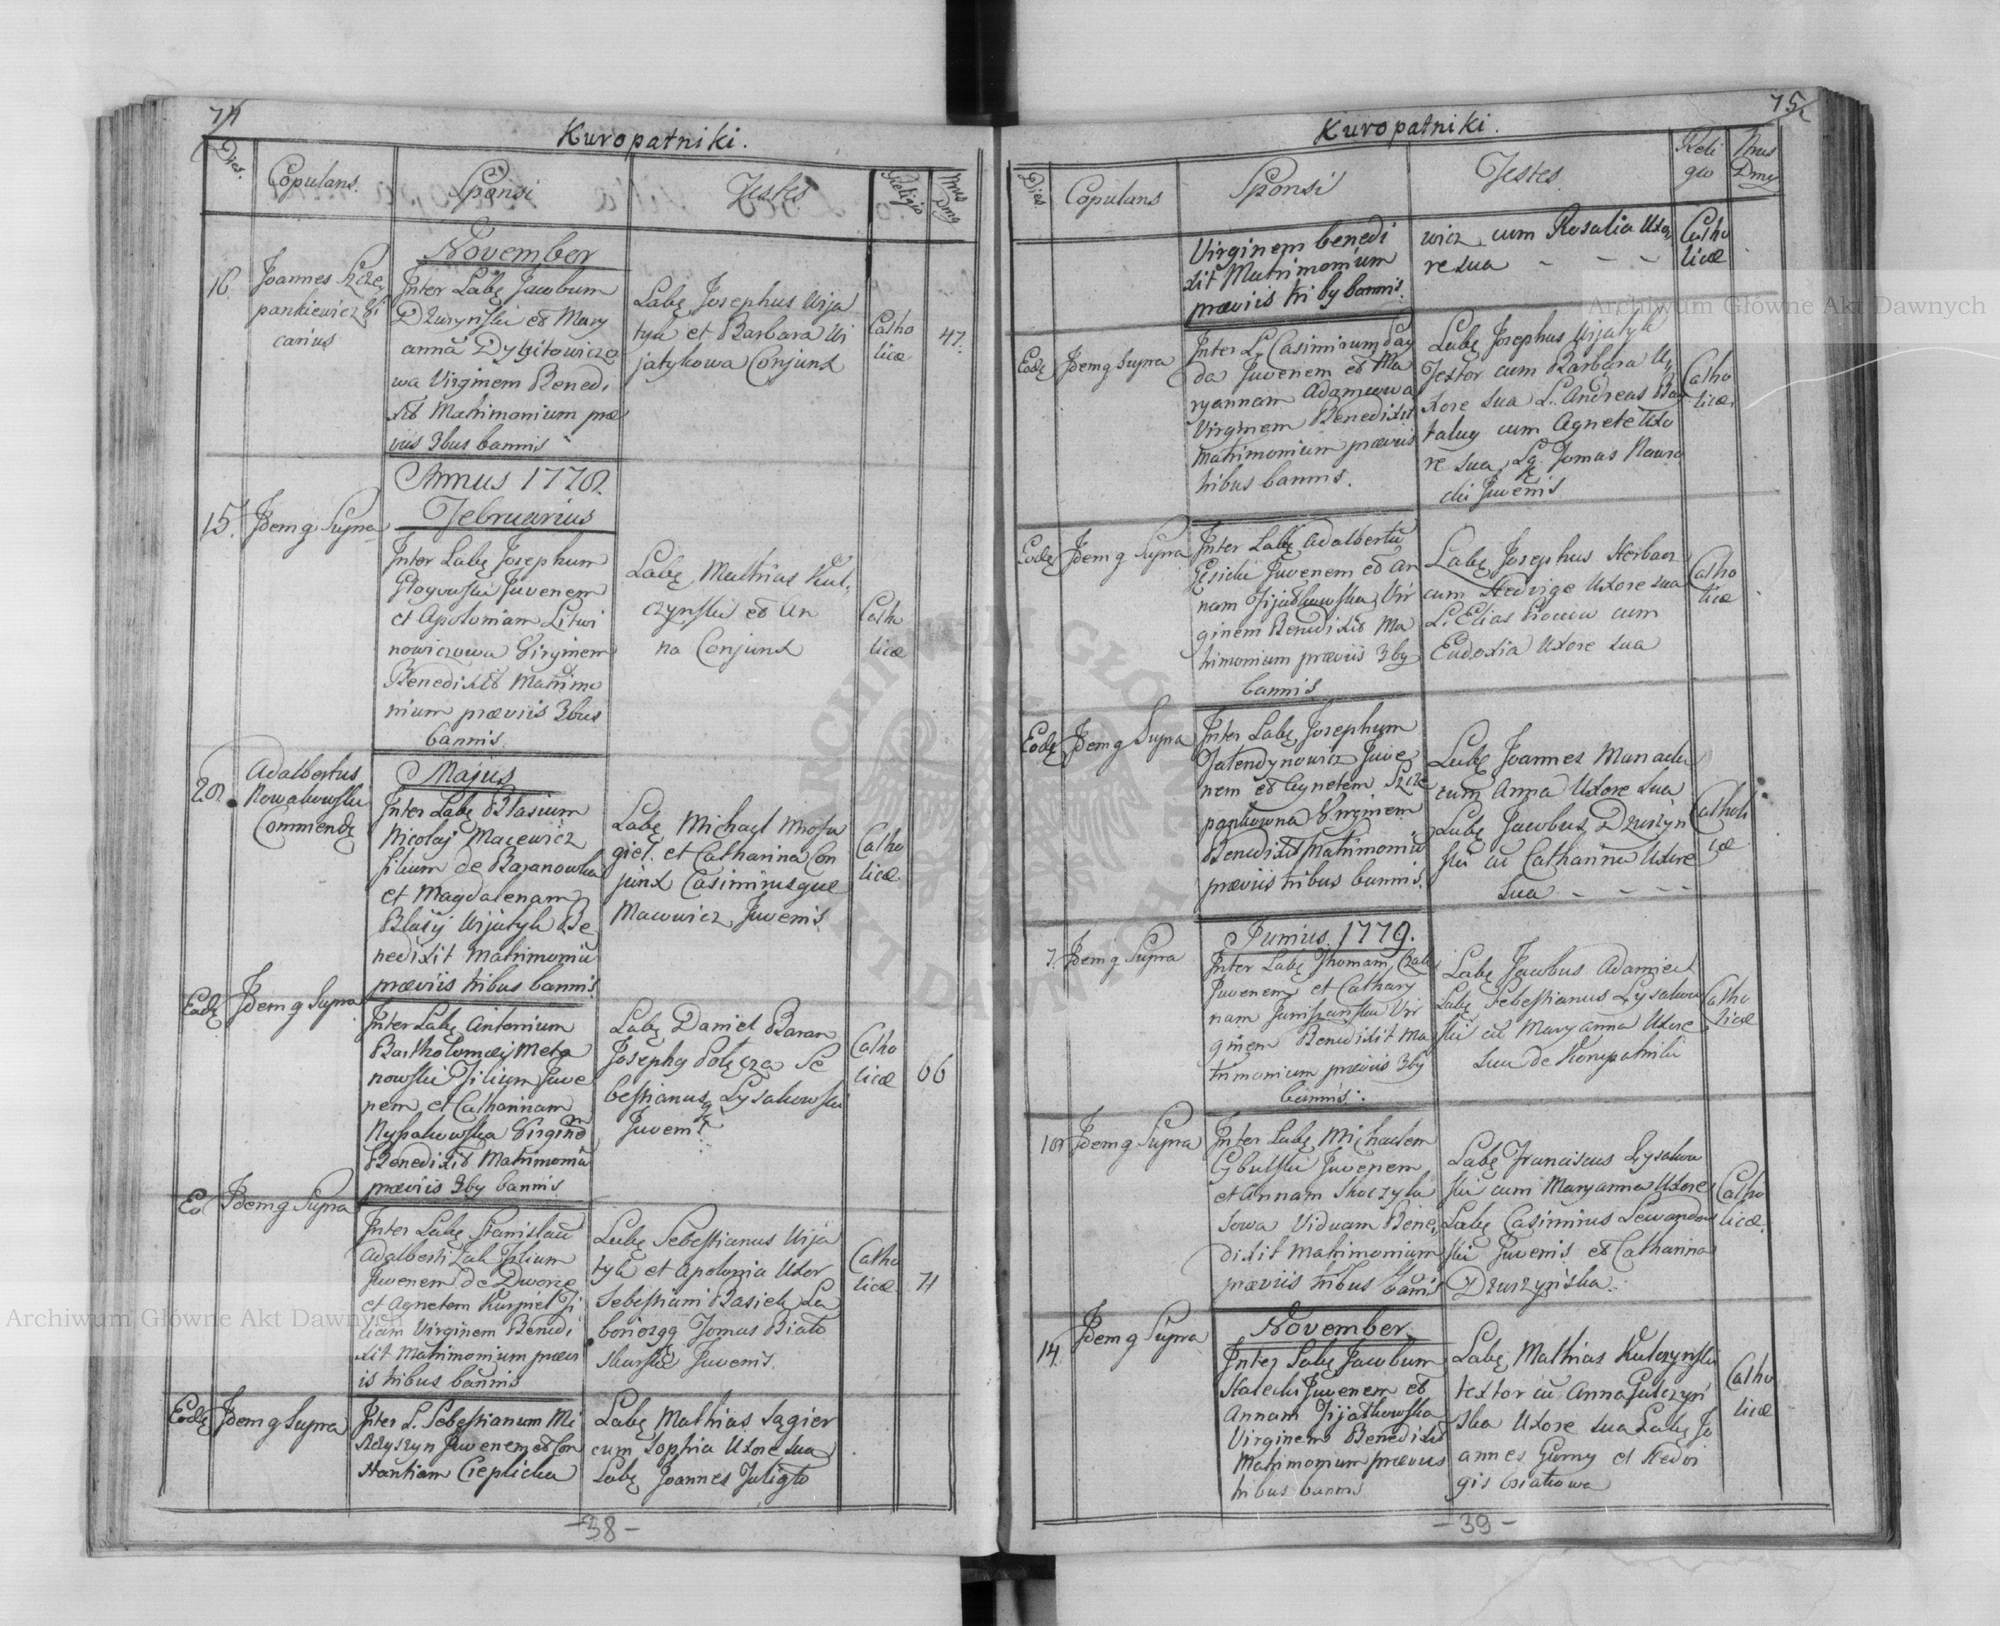 74
Kuropatniki.
Dies.
Copulans.
Sponsi
Testes
Religio
Nrus Dmg
November
16
Joannes Szcze
pankiewicz Vi
carius
Inter Labę Jacobum
Druzyński et Mary
annā Dyszitowiczo
wa Virginem Benedi
xit Matrimonium præ
viis 3bus bannis
Labę Josephus Wija
tyk et Barbara Wi
jatykowa Conjunx
Catho
licæ
47.
Annus 1778.
Februarius
15.
Idem q Supra
Inter Labę Josephum
Głogowski Juvenem
et Apoloniam Litwi
nowiczowa Virginem
Benedixit Matrimo
nium præviis 3bus
bannis.
Labę Mathias Kul
czynski et An
na Conjunx
Catho
licæ
Majus
28.
Adalbertus
Nowakowski
Commendę
Inter Labę Blasium
Nicolaj Macewicz
filium de Baranowka
et Magdalenam
Blasij Wijatyk Be
nedixit Matrimoniū
præviis tribus bannis
Labę Michael
giel. et Catharina Con
junx Casimirusque
Macewicz Juvenis
Catho
licæ
Eodę
Idem q Supra
Inter Labę Antonium
Bartholomæj Meta
nowski Filium Juve
nem et Catharinam
Virginē
Benedixit Matrimoniū
præviis 3bq bannis
Labę Daniel Baran
Josephq Połącza Se
bestianusq Lysakowski
Juvenis
Catho
licæ
66
Eo
Idem q Supra
Inter Labę Stanislaū
Adalberti Żak Filium
Juvenem de Dworze
et Agnetem Kurpiel Fi
liam Virginem Benedi
xit Matrimonium prævi
is tribus bannis
Labę Sebestianus Wija
tyk et Apolonia Uxor
Sebestiani Basiek La
boriosqq Tomas Biało
skurski Juvenis.
Catho
licæ
71
Eodę
Idem q Supra
Inter L. Sebestianum Mi
Juvenem et Con
stantiam Cieplicka
Labę Mathias Sągier
cum Sophia Uxore sua
Labę Joannes
-38-
75
Kuropatniki.
Dies.
Copulans
Sponsi
Testes
Reli
gio
Nrus
Dmg
Virginem benedi
xit Matrimonium
præviis tribq bannis.
wicz cum Rosalia Uxo
re sua - - -
Catho
licæ
Eodę
Idem q Supra
Inter L. Casimirum Gay
da Juvenem et Ma
ryannam Adamcowa
Virginem Benedixit
Matrimonium præviis
tribus bannis.
Labę Josephus Wijatyk
Textor cum Barbara U
xore sua L. Andreas Bar
taluy cum Agnete Uxo
re sua, Lq. Tomas Nawro
cki Juvenis
Catho
licæ.
Eodę
Idem q Supra
Inter Labę Adalbertū
Juvenem et An
nam Fijałkowska Vir
ginem Benedixit Ma
trimonium præviis 3bq
bannis
Labę Josephus Herbaz
cum Hedvige Uxore sua
L. Elias cum
Eudoxia Uxore sua
Catho
licæ
Eodę
Idem q Supra
Inter Labę Josephum
Juve
nem et Agnetem Szcze
pankowna Virginem
Benedixit Matrimoniū
præviis tribus bannis.
Labę Joannes Manacki
cum Anna Uxore sua
Labę Jacobus Druzyn
ski cū Catharina Uxore
sua - - - -
Catholi
cæ
Junius. 1779.
7.
Idem q Supra
Inter Labę Thomam
Juvenem et Cathary
nam Vir
ginem Benedixit Ma
trimonium præviis 3bq
bannis.
Labę Jacobus Adamiec
Labę Sebestianus Lysakow
ski cū Maryanna Uxore
sua de Koropatniki
Catho
licæ
Idem q Supra
Inter Labę Michaelem
Cybulski Juvenem
et Annam Skoczyla
sowa Viduam Bene
dixit Matrimonium
præviis tribus bañis
Labę Franciscus Lysakow
ski cum Maryanna Uxore
Labę Casimirus Lewandow
ski Juvenis et Catharina
Druszyńska.
Catho
licæ.
November
14.
Idem q Supra
Inter Labę Jacobum
Juvenem et
Annam Fijałkowska
Virginem Benedixit
Matrimonium præviis
tribus bannis
Labę Mathias Kulczynski
textor cū Anna Gulczyń
ska Uxore sua Labę Jo
annes Gurny et Hedvi
gis
Catho
licæ
-39-
Archiwum Główne Akt Dawnych
Archiwum Główne Akt Dawnych
ARCHIWUM GŁÓWNE AKT DAWNYCH